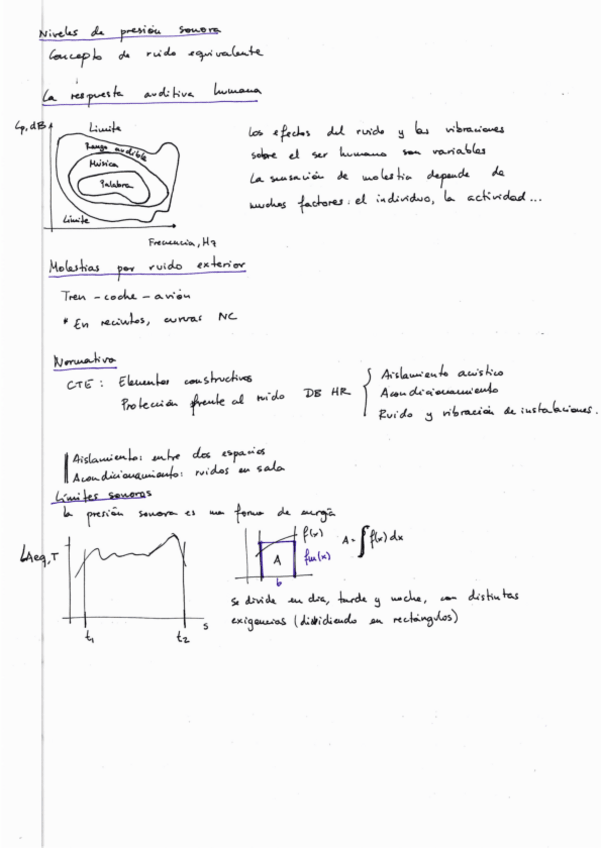 Niveles de presión sonora
Concepto de ruido equivalente
La respuesta auditiva humana
Lp, dB
Límite
Rango audible
Música
Palabra
Límite
Frecuencia, Hz
Los efectos del ruido y las vibraciones
sobre el ser humano son variables
La sensación de molestia depende de
muchos factores: el individuo, la actividad...
Molestias por ruido exterior
Tren - coche - avión
* En recintos, curvas NC
Normativa
CTE: Elementos constructivos
Protección frente al ruido DB HR
Aislamiento acústico
Acondicionamiento
Ruido y vibración de instalaciones.
Aislamiento: entre dos espacios
Acondicionamiento: ruidos en sala
Límites sonoros
La presión sonora es una forma de energía
LAeq,T
t1
t2
s
f(x)
fm(x)
A
b
A = ∫f(x)dx
se divide en día, tarde y noche, con distintas
exigencias (dividiendo en rectángulos)